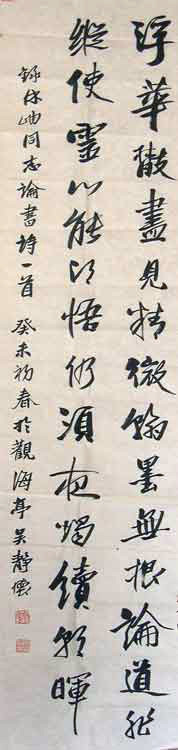 浮華散盡見精微翰墨無根論道非
縱使靈心能頂悟仍須夜燭續朝暉
錄休幽同志論書詩一首 癸未初春於觀海亭吳靜儂